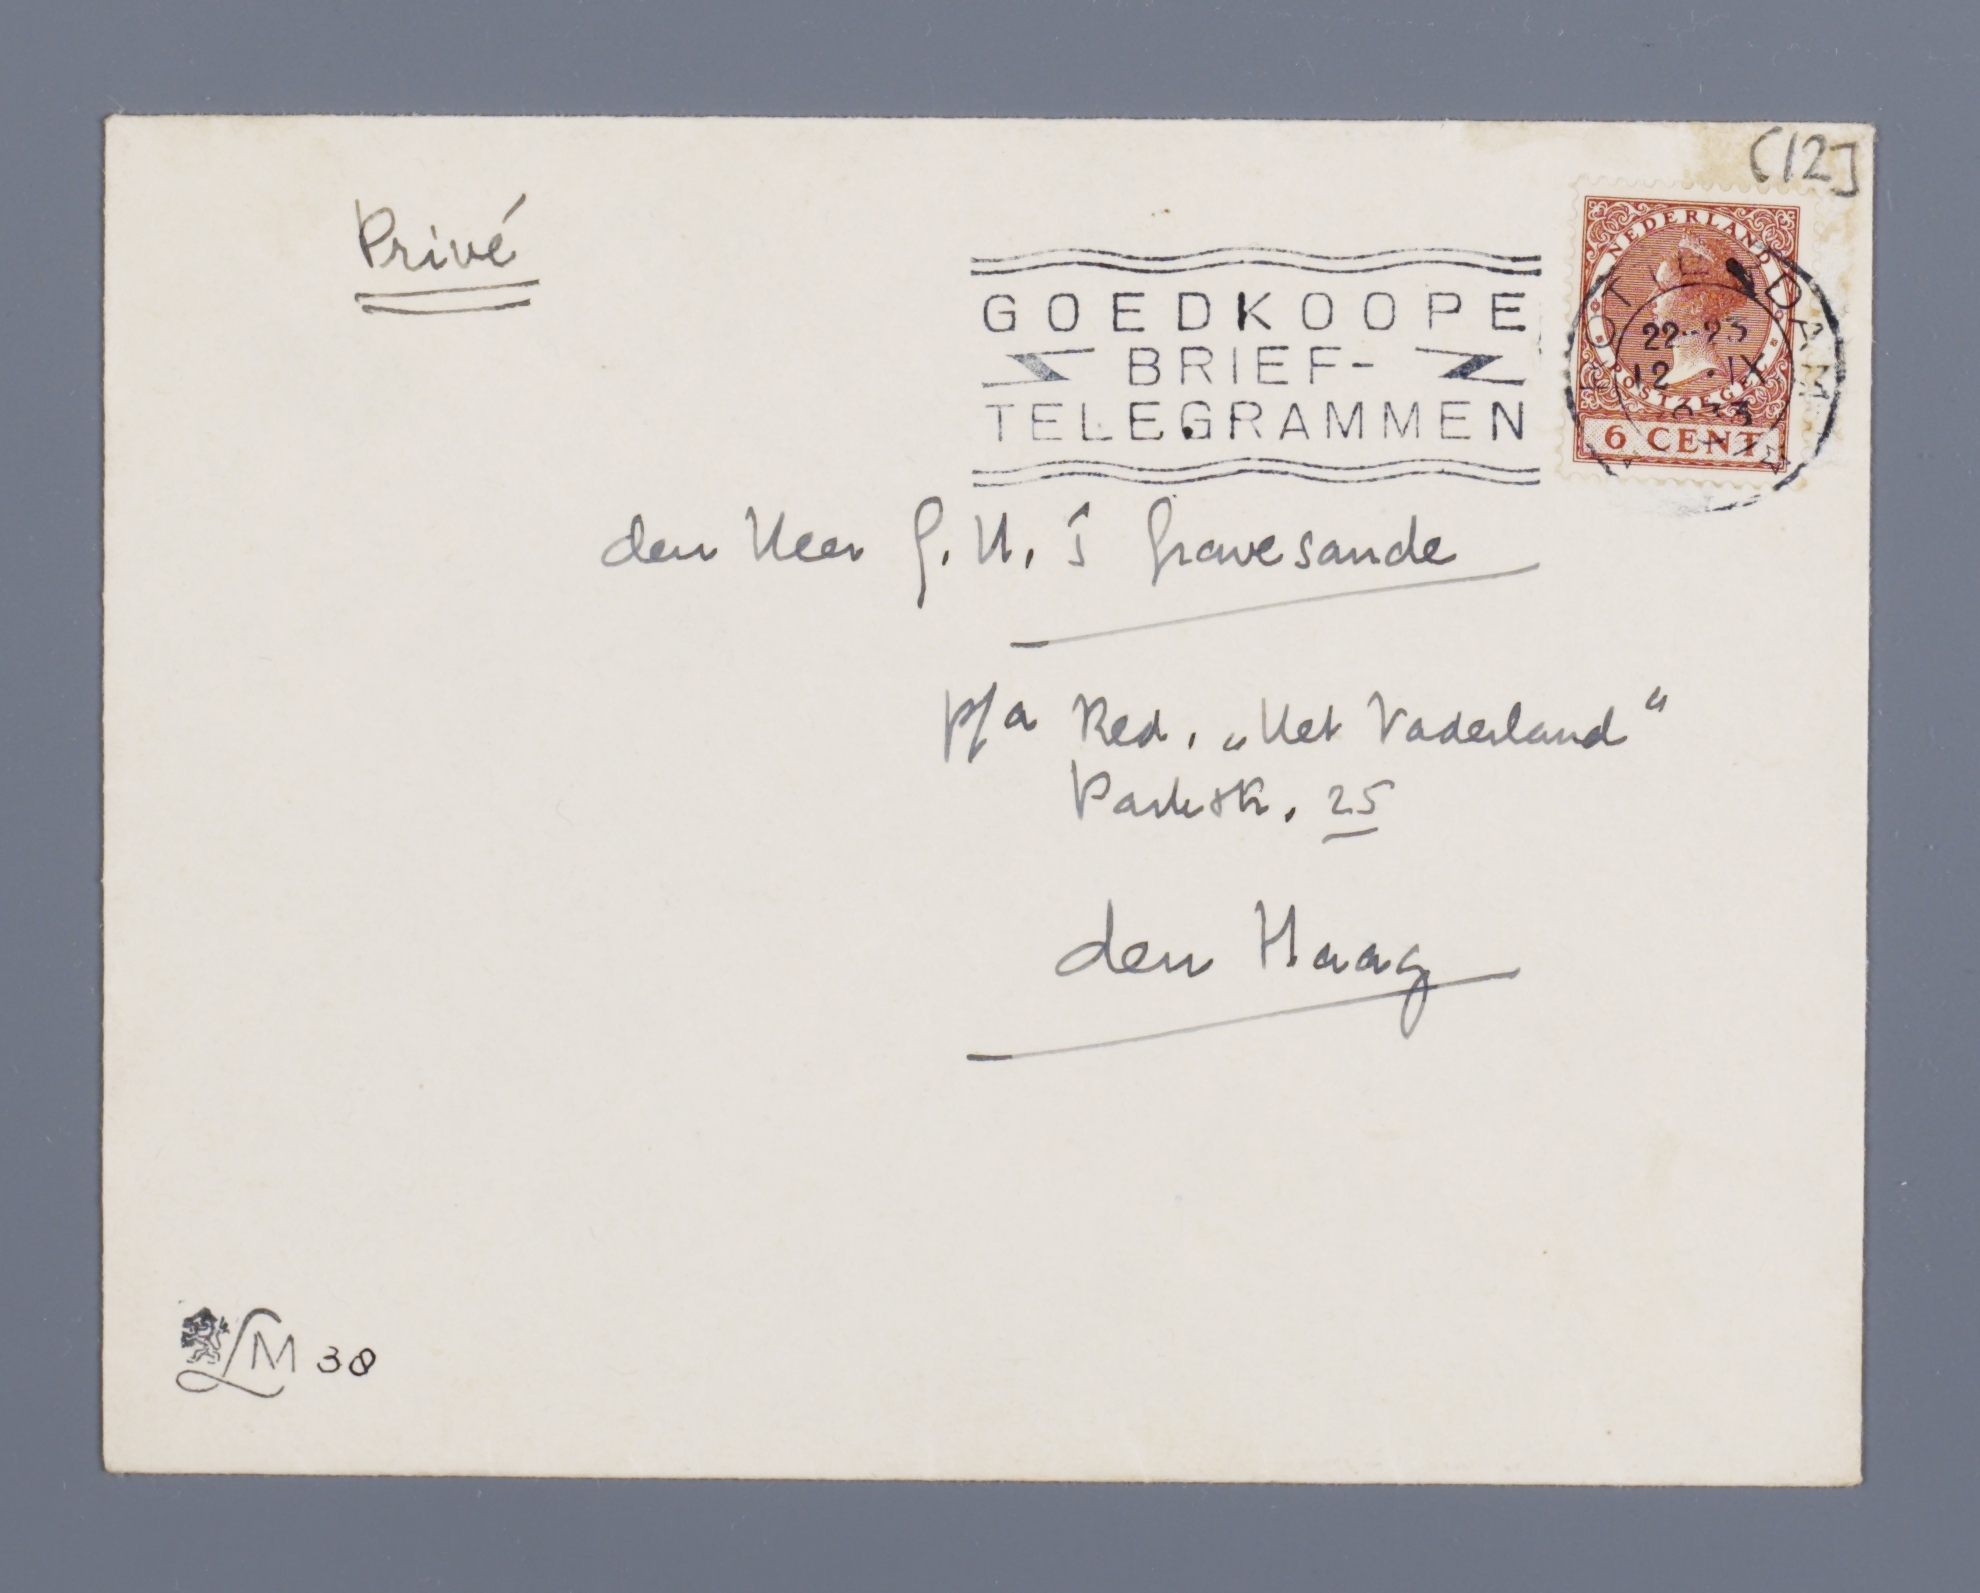 [12]
Privé
NEDERLAND
POSTZEGEL
6 CENT
ROTTERDAM
22-23
12 .IX
1933
GOEDKOOPE
BRIEF-
TELEGRAMMEN
den Heer G. H. 's Gravesande
p/a Red. „Het Vaderland“
Parkstr. 25
den Haag
LM 38